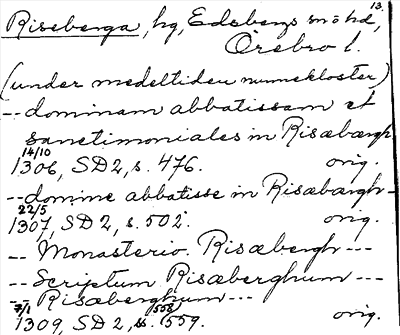 13.
Riseberga, hg, Edsbergs sn o hd,
Örebro l.
(under medeltiden nunnekloster)
-- dominam abbatissam et
sanctimoniales in Risæbærgh
14/10
1306, SD 2, s. 476. orig.
-- domine abbatisse in Risæbærgh --
22/5
1307, SD 2, s. 502. orig.
-- Monasterio Risæbergh ---
-- Scriptum Risæberghum ---
--- Risæberghum ---
7/1 558
1309, SD 2, s. 559. orig.